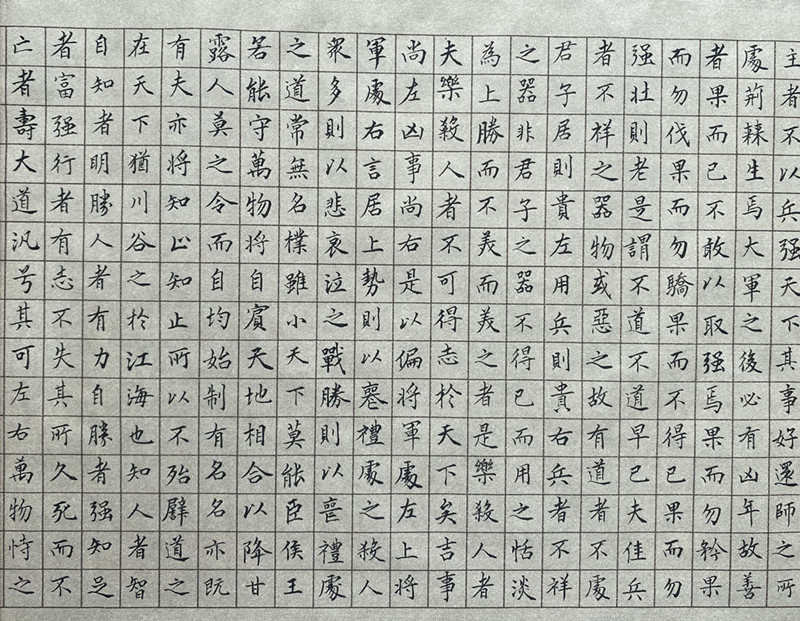 主者不以兵强天下其事好還師之所
處荊棘生焉大軍之後必有凶年故善
者果而已不敢以取强焉果而勿矜果
而勿伐果而勿驕果而不得已果而勿
强壯則老是謂不道不道早已夫佳兵
者不祥之器物或惡之故有道者不處
君子居則貴左用兵則貴右兵者不祥
之器非君子之器不得已而用之恬淡
為上勝而不美而美之者是樂殺人者
夫樂殺人者不可得志於天下矣吉事
尚左凶事尚右是以偏將軍處左上將
軍處右言居上勢則以喪禮處之殺人
衆多則以悲哀泣之戰勝則以喪禮處
之道常無名樸雖小天下莫能臣侯王
若能守萬物將自賓天地相合以降甘
露人莫之令而自均始制有名名亦既
有夫亦將知止知止所以不殆譬道之
在天下猶川谷之於江海也知人者智
自知者明勝人者有力自勝者强知足
者富强行者有志不失其所久死而不
亡者壽大道汎兮其可左右萬物恃之